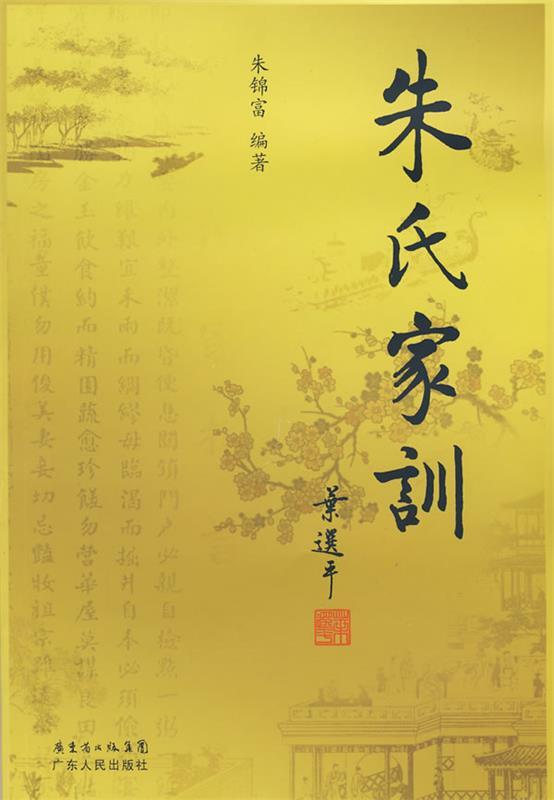 朱氏家訓
葉選平
朱锦富 编著
內外整潔既昏便息關鎖門戶必親自檢點一粥
力維艱宜未雨而綢繆毋臨渴而掘井自奉必須儉
金玉飲食約而精園蔬愈珍饈勿營華屋莫謀良田
房之福童僕勿用俊美妻妾切忌豔妝祖宗雖遠祭
廣東省出版集團
广东人民出版社